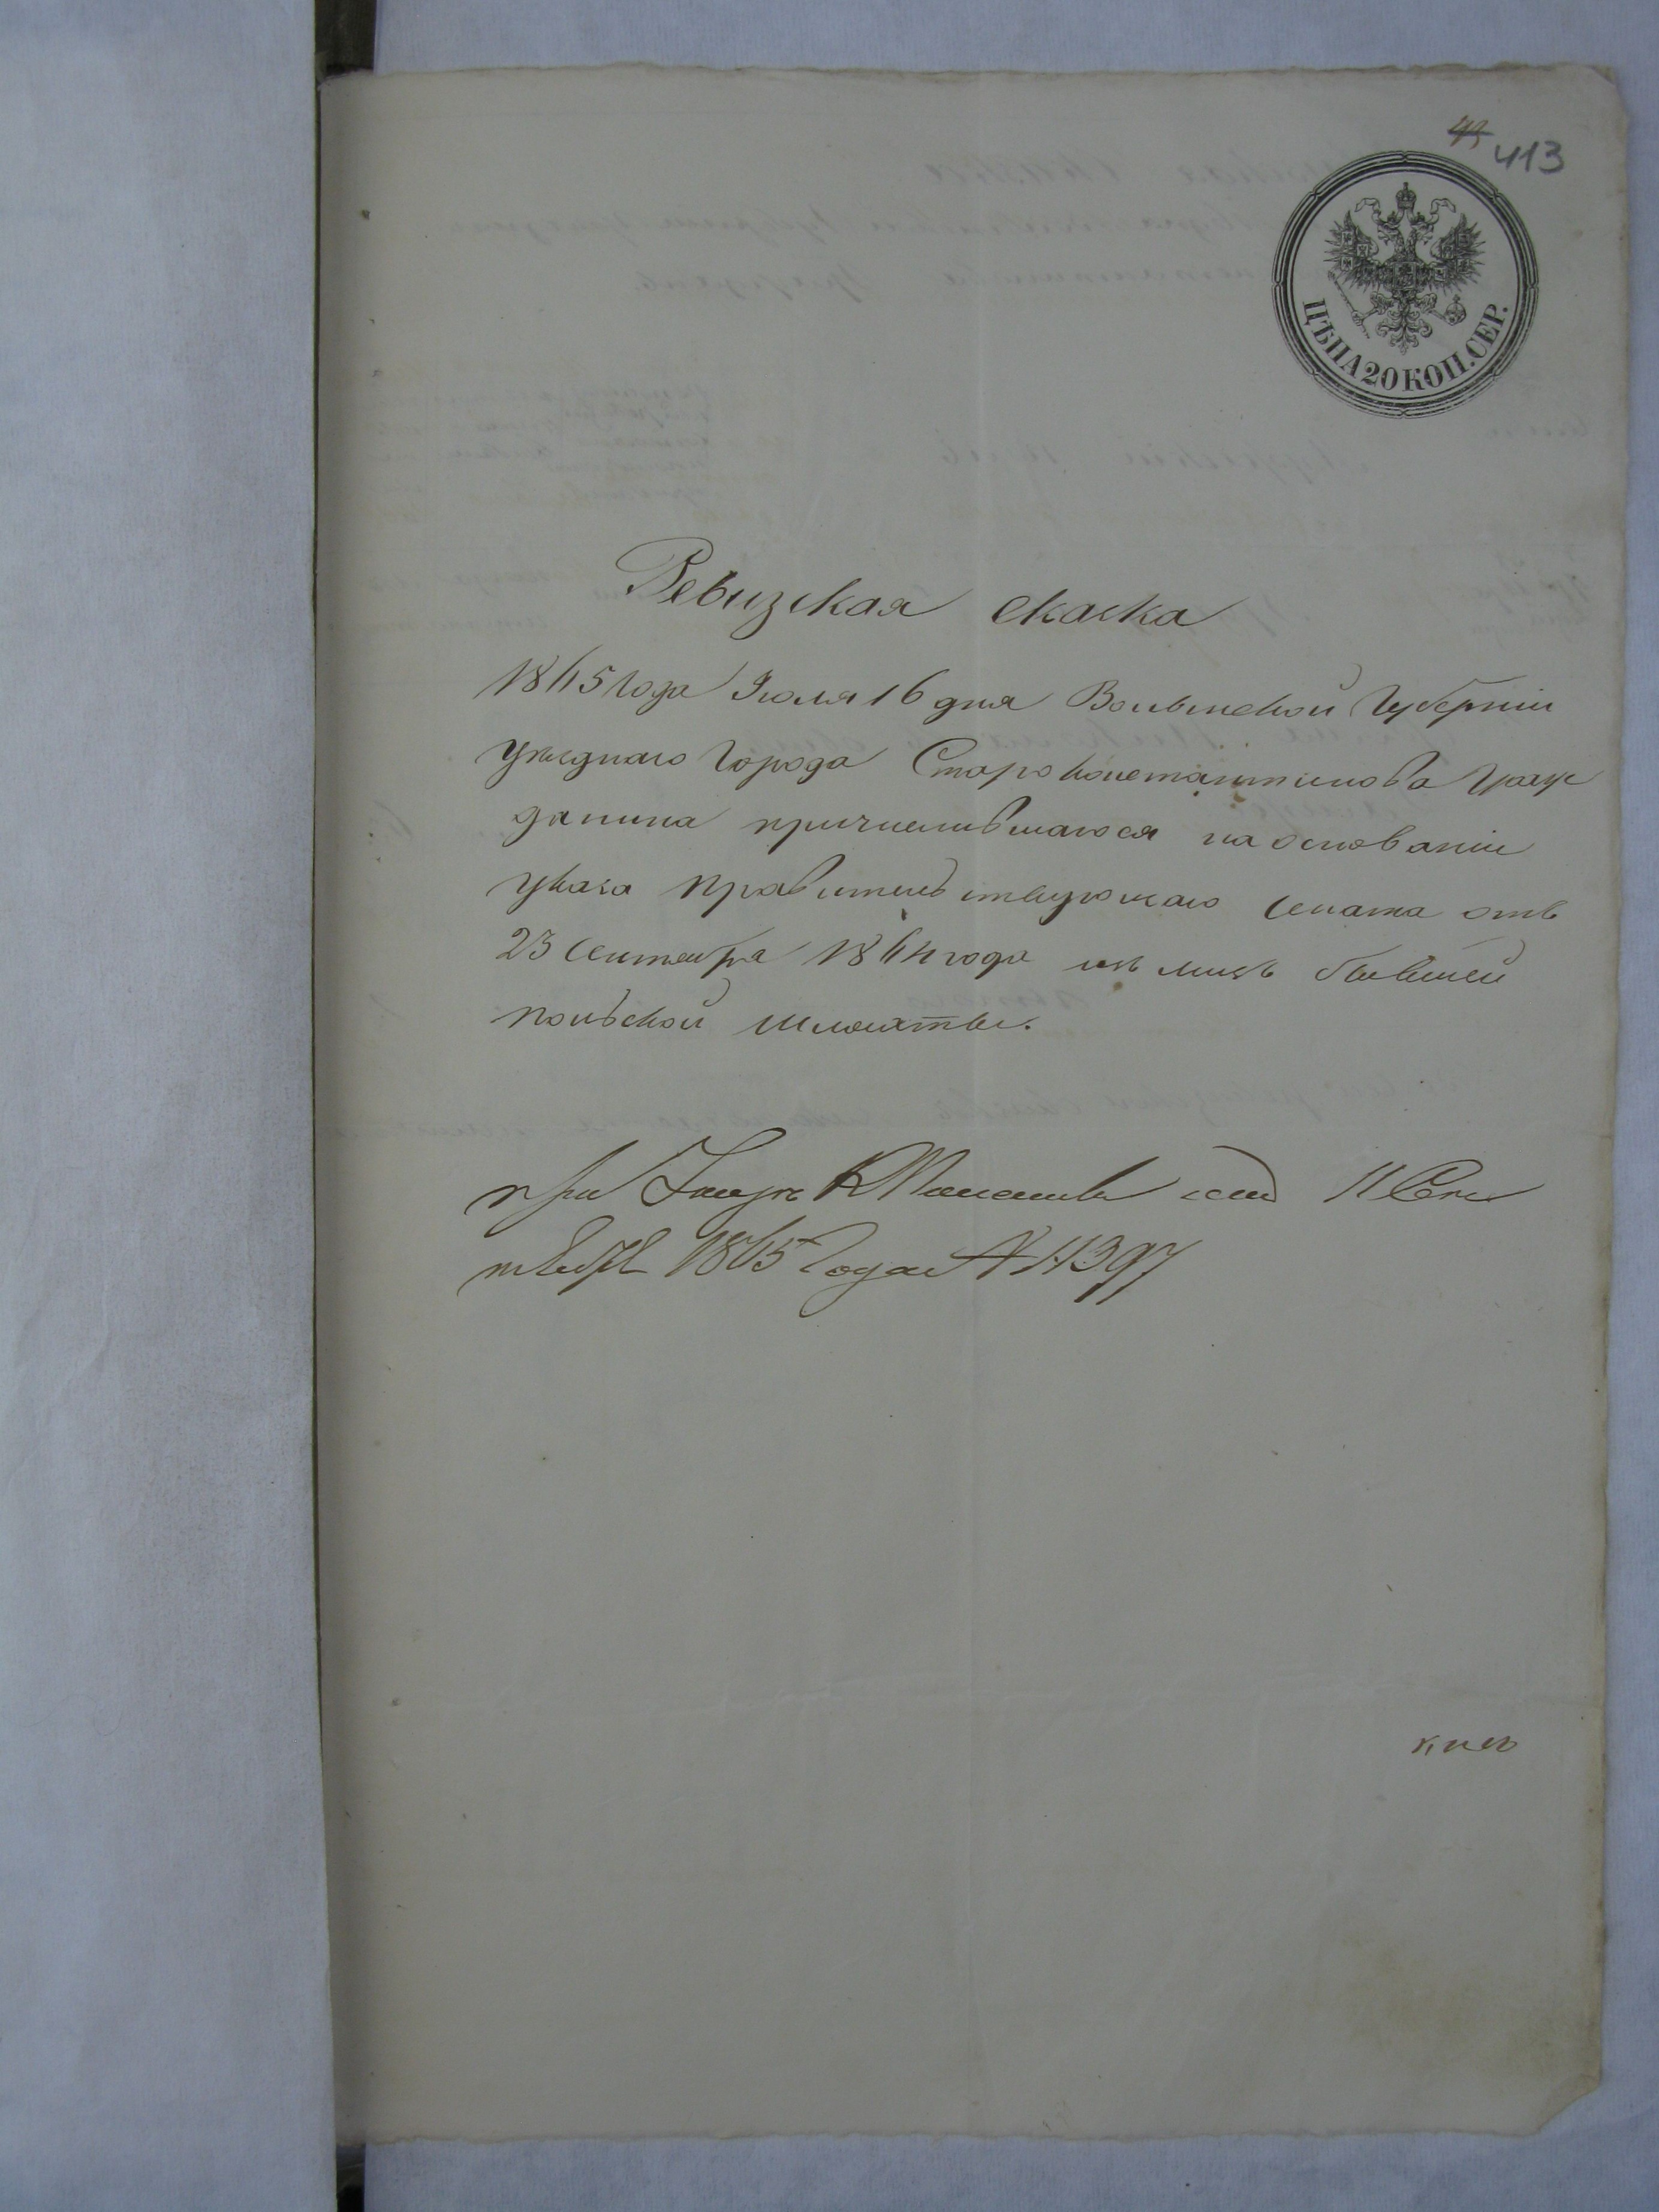 413
ЦѢНА 20 КОП. СЕР.
Ревизская скаска
1865 года Іюля 16 дня Волынской Губерніи
уѣзднаго города Староконстантинова Граж
данина причислившагося на основаніи
указа правительствующаго сената отъ
23 Сентября 1864 года изъ лицъ бывшей
польской шляхты.
при Указѣ К Палаты 11 Сен
тября 1865 года № 14397